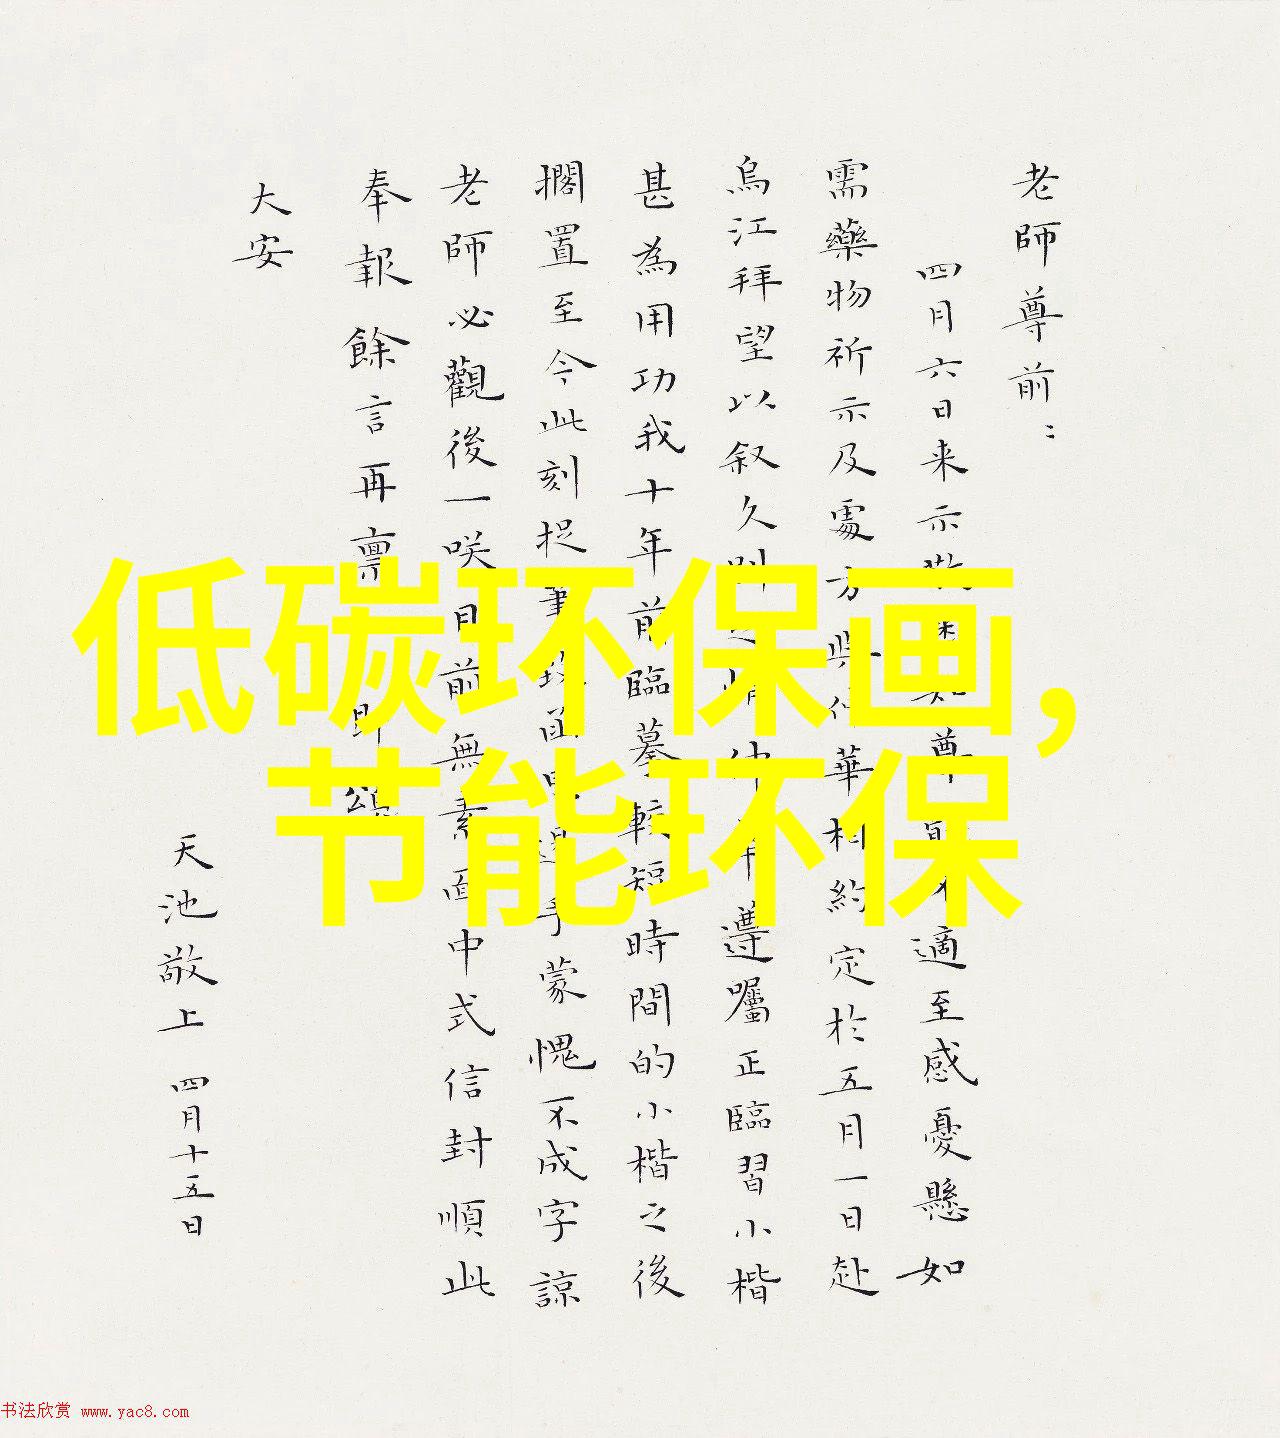 老師尊前：
四月六日来示敬尊不適至感憂懸如
需藥物祈示及處方與仲華相約定於五月一日赴
烏江拜望以叙久别之情仲華遵囑正臨習小楷
甚為用功我十年前臨摹較短時間的小楷之後
擱置至今此刻捉筆致函手蒙愧不成字諒
老師必觀後一咲日前無素面中式信封順此
奉報餘言再禀即頌
大安
天池敬上 四月十五日
低碳环保画，
节能环保
书法欣赏 www.yac8.com